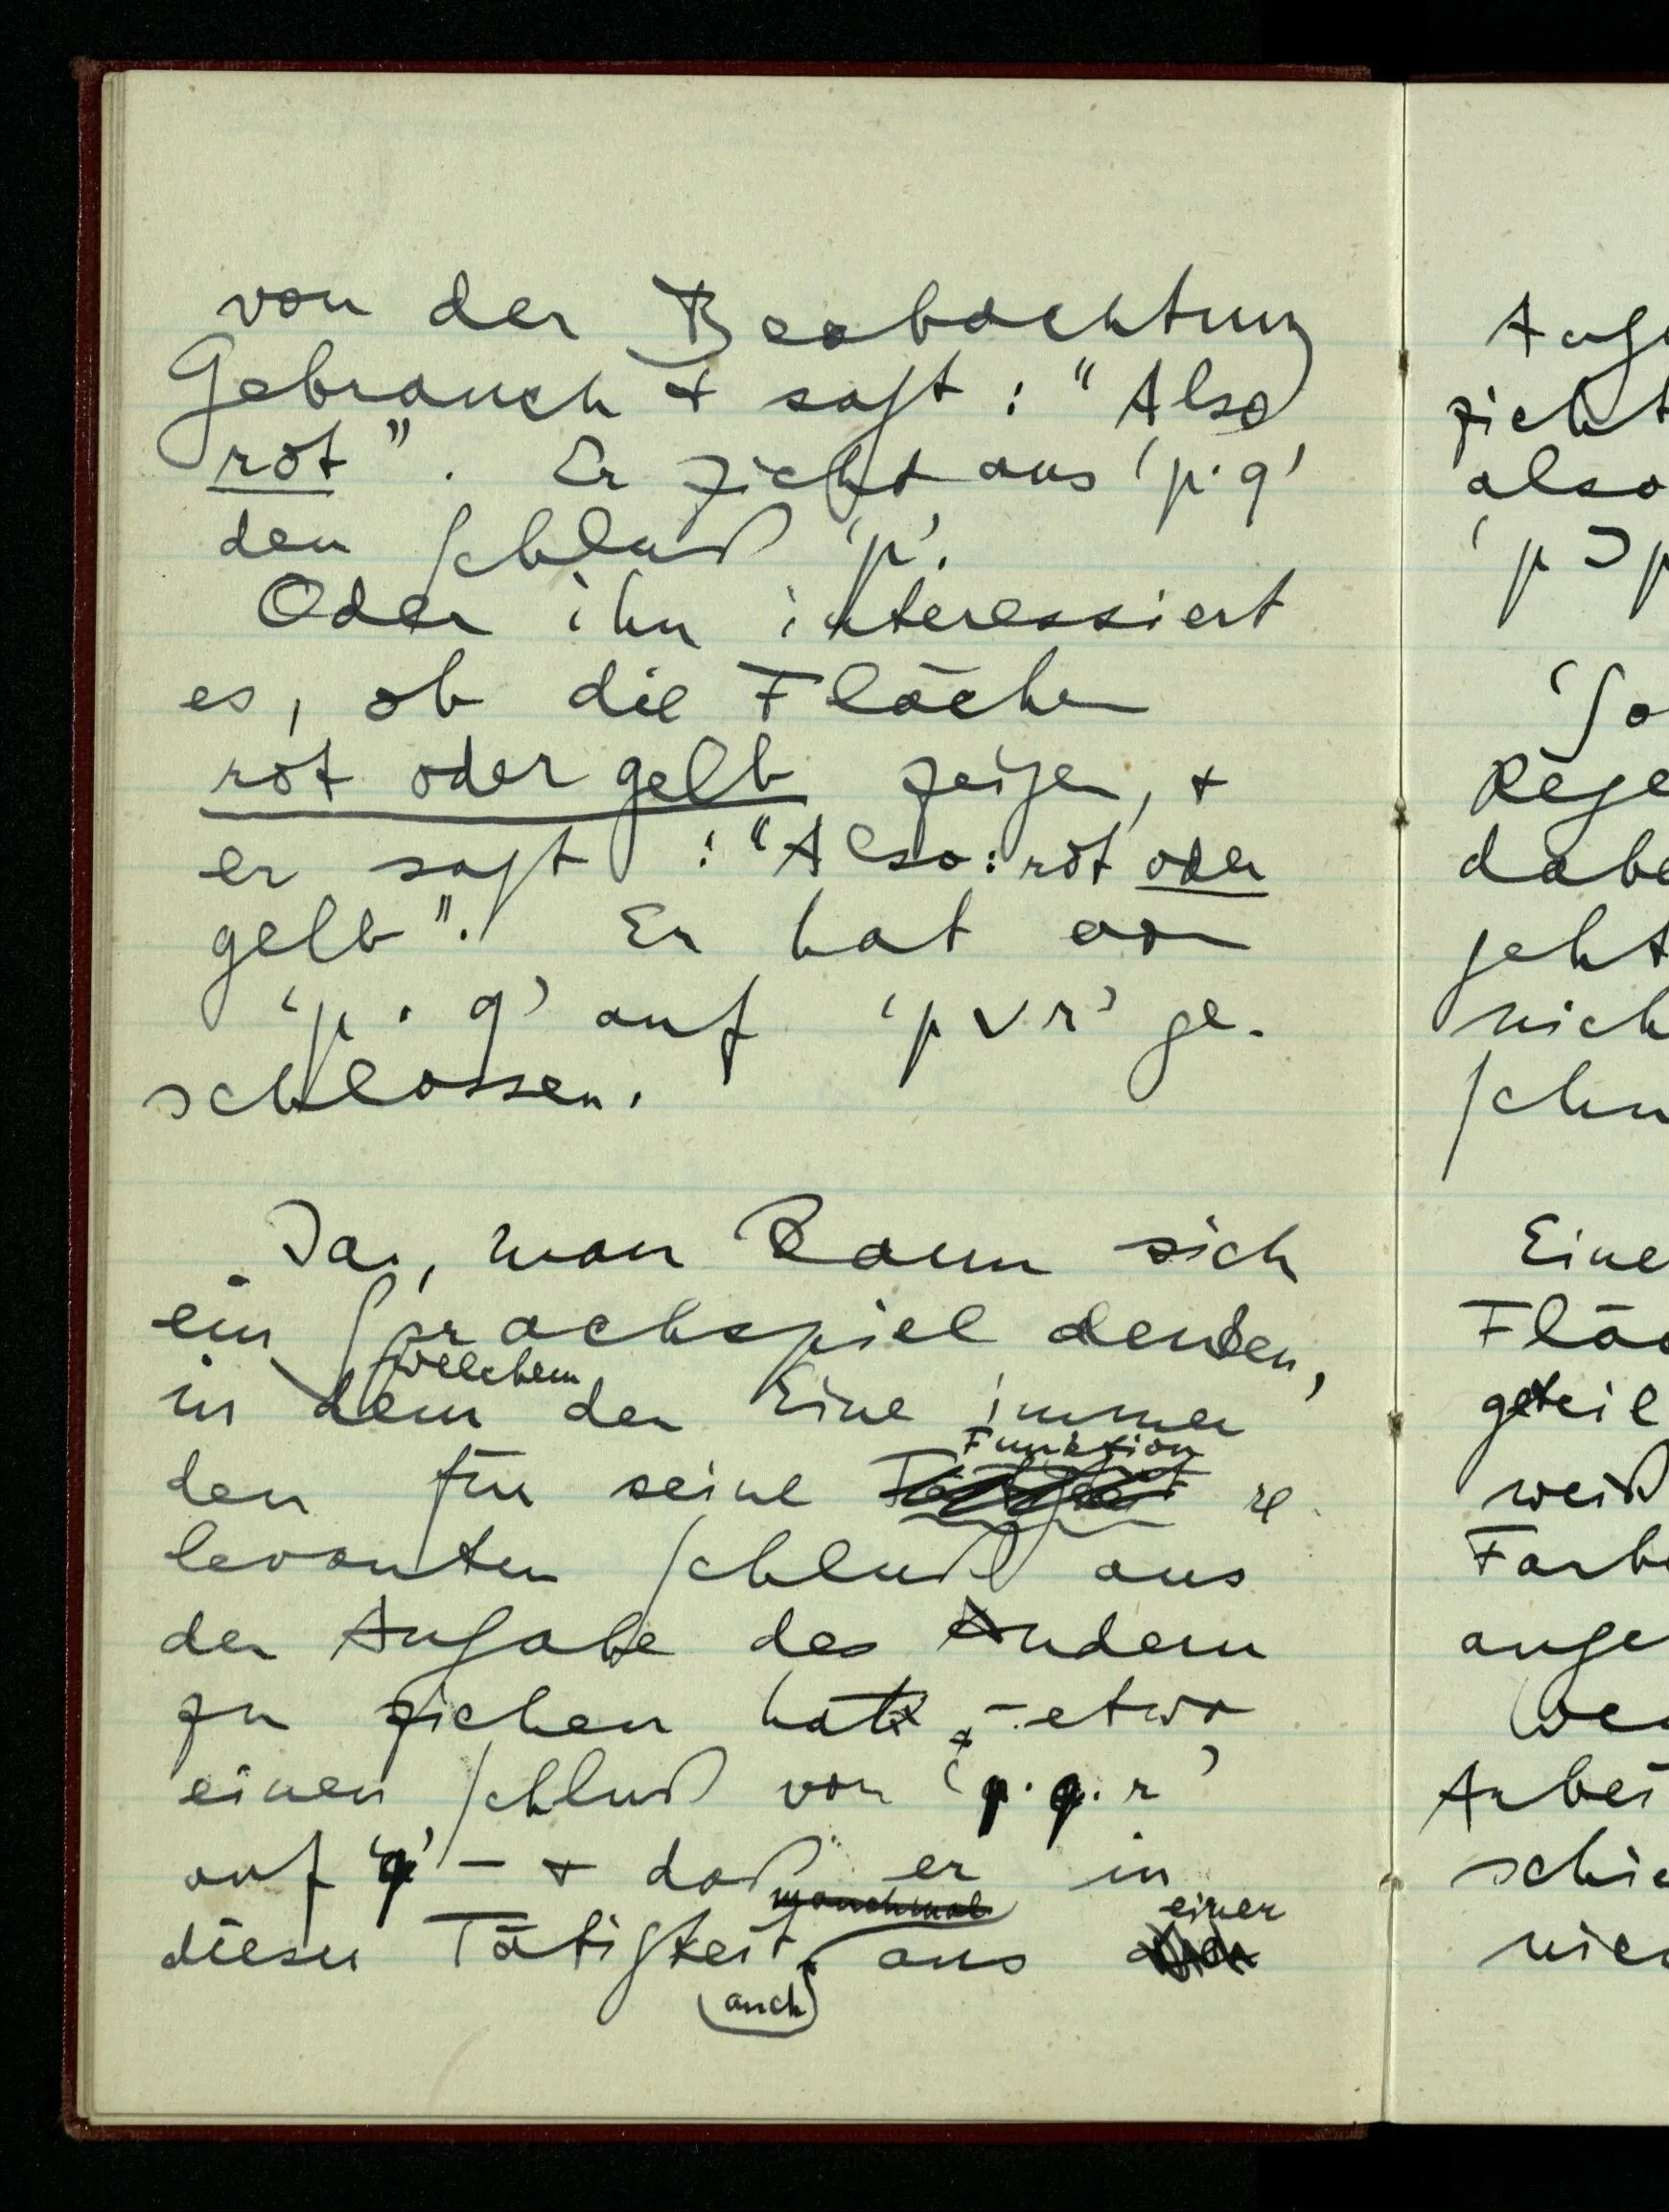 von der Beobachtung
Gebrauch + sagt: "Also
rot". Er zieht aus 'p∙q'
den Schluß 'p'.
Oder ihn interessiert
es, ob die Flächen
rot oder gelb zeigen, +
er sagt: "Also: rot oder
gelb". Er hat von
'p ∙ q' auf 'p ∨ r' ge-
schlossen.
Ja, man kann sich
ein Sprachspiel denken,
welchem
in dem der Eine immer
Funktion
den für seine re
levanten Schluß aus
der Angabe des Andern
zu ziehen hat, – etwa
einen Schluß von 'p∙q∙r'
auf 'q' – + daß er in
manchmal einer
dieser Tätigkeit aus
auch
Ange
zieht
also
'p ⊃ p
'So
Rege
dabe
geht
nich
Schu
Eine
Fläc
geteil
weiß
Farbe
ange
We
Arbei
schie
nich